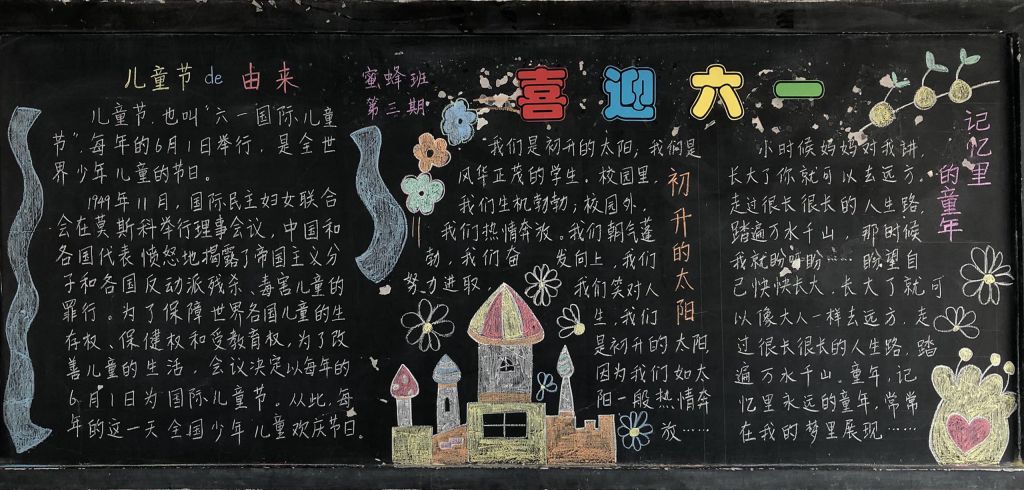 儿童节 de 由来
儿童节，也叫“六一国际儿童
节”，每年的6月1日举行，是全世
界少年儿童的节日。
1949年11月，国际民主妇女联合
会在莫斯科举行理事会议，中国和
各国代表愤怒地揭露了帝国主义分
子和各国反动派残杀、毒害儿童的
罪行。为了保障世界各国儿童的生
存权、保健权和受教育权，为了改
善儿童的生活，会议决定以每年的
6月1日为国际儿童节。从此，每
年的这一天全国少年儿童欢庆节日。
蜜蜂班
第三期
喜迎六一
初升的太阳
“我们是初升的太阳，我们是
风华正茂的学生。校园里，
我们生机勃勃；校园外，
我们热情奔放。我们朝气蓬
勃，我们奋发向上，我们
努力进取，我们笑对人
生，我们
是初升的太阳，
因为我们如太
阳一般热情奔
放……
记忆里
的童年
小时候妈妈对我讲，
长大了你就可以去远方。
走过很长很长的人生路，
踏遍万水千山，那时候
我就盼呀盼……盼望自
己快快长大，长大了就可
以像大人一样去远方，走
过很长很长的人生路，踏
遍万水千山。童年，记
忆里永远的童年，常常
在我的梦里展现……